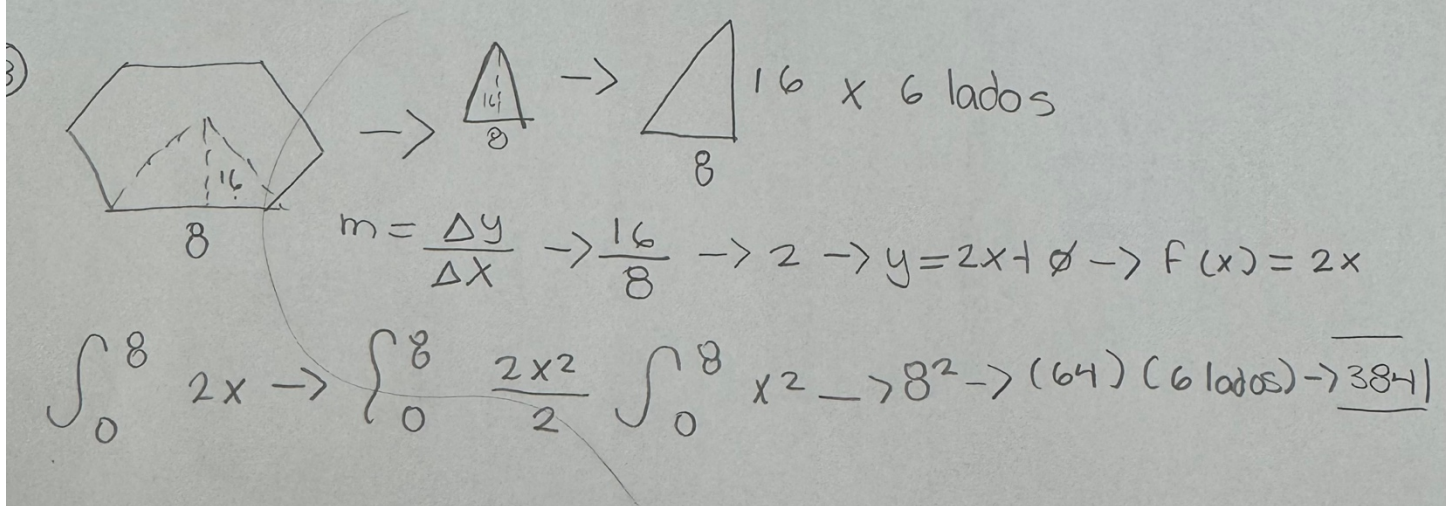 3
16
8
->
16
8
->
16 x 6 lados
8
m = Δy/ΔX -> 16/8 -> 2 -> y=2x+ø -> f(x) = 2x
∫₀⁸ 2x -> ∫₀⁸ 2x²/2 ∫₀⁸ x² -> 8² -> (64) (6 lados) -> 384